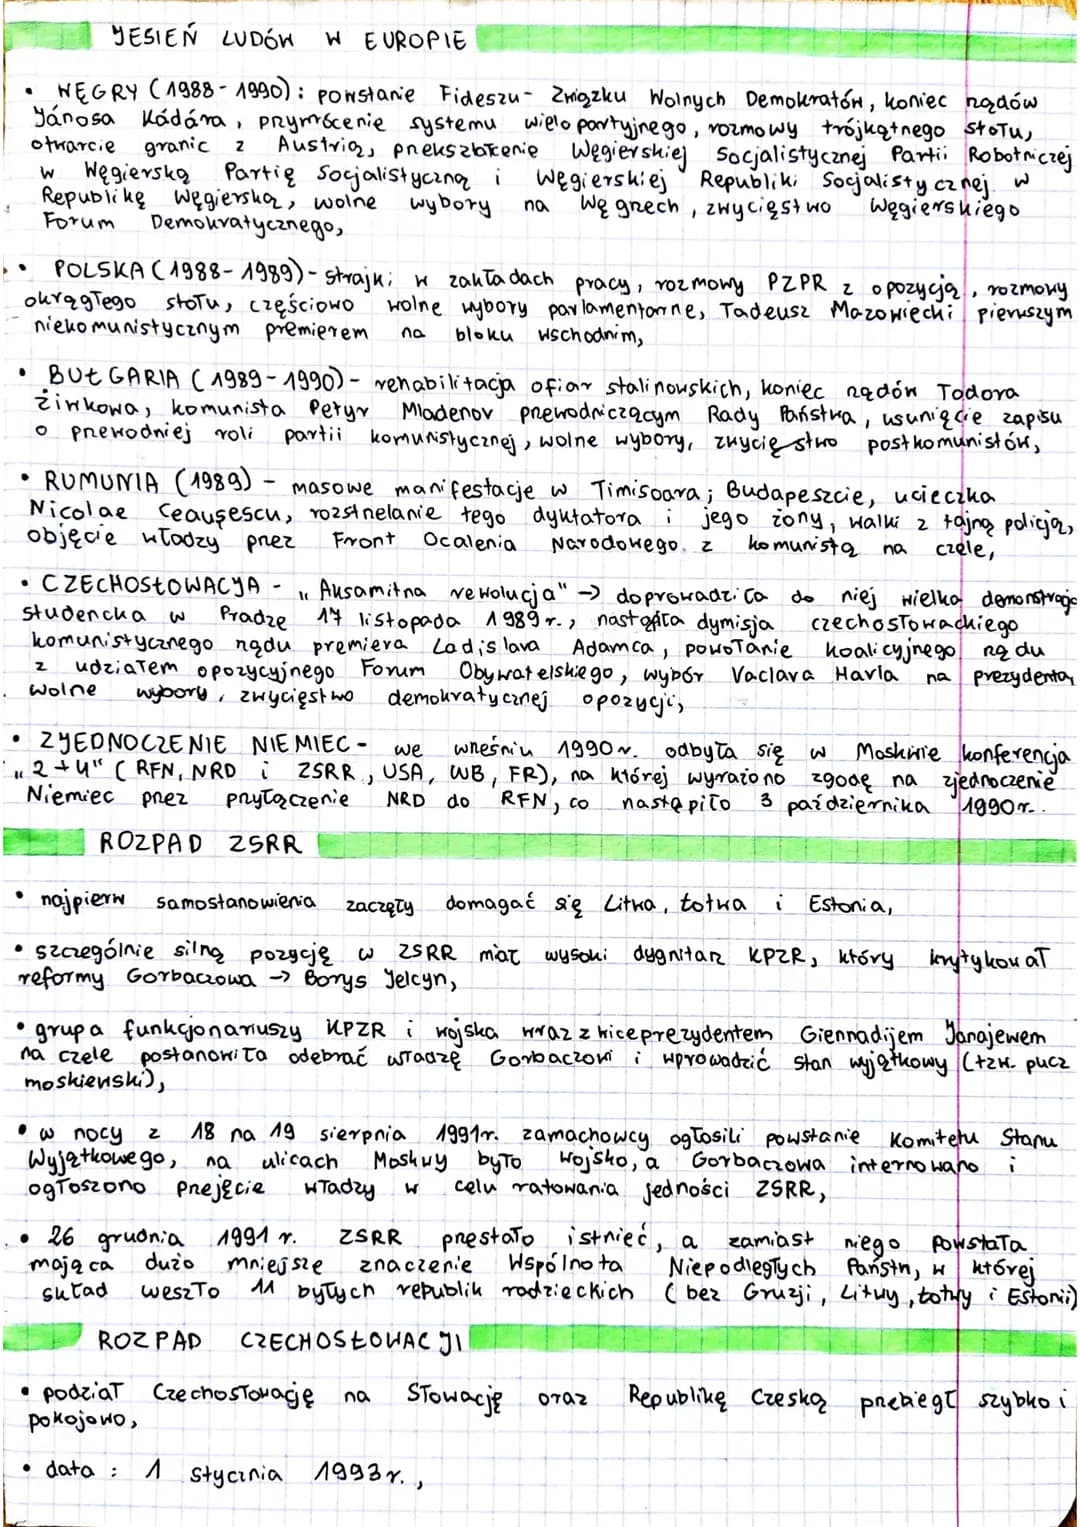 JESIEŃ LUDÓW W EUROPIE
• WĘGRY (1988-1990): powstanie Fideszu- Związku Wolnych Demokratów, koniec rządów
Jánosa Kádára, przywrócenie systemu wielopartyjnego, rozmowy trójkątnego stołu,
otwarcie granic z Austrią, przekształcenie Węgierskiej Socjalistycznej Partii Robotniczej
w Węgierską Partię Socjalistyczną i Węgierskiej Republiki Socjalistycznej w
Republikę Węgierską, wolne wybory na Węgrzech, zwycięstwo Węgierskiego
Forum Demokratycznego,
• POLSKA (1988-1989)- strajki w zakładach pracy, rozmowy PZPR z opozycją, rozmowy
okrągłego stołu, częściowo wolne wybory parlamentarne, Tadeusz Mazowiecki pierwszym
niekomunistycznym premierem na bloku wschodnim,
• BUŁGARIA (1989-1990)- rehabilitacja ofiar stalinowskich, koniec rządów Todora
Żiwkowa, komunista Petyr Mladenov przewodniczącym Rady Państwa, usunięcie zapisu
o przewodniej roli partii komunistycznej, wolne wybory, zwycięstwo postkomunistów,
• RUMUNIA (1989) - masowe manifestacje w Timisoara i Budapeszcie, ucieczka
Nicolae Ceauşescu, rozstrzelanie tego dyktatora i jego żony, walki z tajną policją,
objęcie władzy przez Front Ocalenia Narodowego z komunistą na czele,
• CZECHOSŁOWACJA - „Aksamitna rewolucja" → doprowadziła do niej wielka demonstracja
studencka w Pradze 17 listopada 1989r., nastąpiła dymisja czechosłowackiego
komunistycznego rządu premiera Ladislava Adamca, powołanie koalicyjnego rządu
z udziałem opozycyjnego Forum Obywatelskiego, wybór Vaclava Havla na prezydenta,
wolne wybory, zwycięstwo demokratycznej opozycji,
• ZJEDNOCZENIE NIEMIEC- we wrześniu 1990r. odbyła się w Moskwie konferencja
„2+4" (RFN, NRD i ZSRR, USA, WB, FR), na której wyrażono zgodę na zjednoczenie
Niemiec przez przyłączenie NRD do RFN, co nastąpiło 3 października 1990r.
ROZPAD ZSRR
• najpierw samostanowienia zaczęły domagać się Litwa, Łotwa i Estonia,
• szczególnie silną pozycję w ZSRR miał wysoki dygnitarz KPZR, który krytykował
reformy Gorbaczowa → Borys Jelcyn,
• grupa funkcjonariuszy KPZR i wojska wraz z wiceprezydentem Giennadijem Janajewem
na czele postanowiła odebrać władzę Gorbaczowi i wprowadzić stan wyjątkowy (tzw. pucz
moskiewski),
• w nocy z 18 na 19 sierpnia 1991r. zamachowcy ogłosili powstanie Komitetu Stanu
Wyjątkowego, na ulicach Moskwy było wojsko, a Gorbaczowa internowano i
ogłoszono przejęcie władzy w celu ratowania jedności ZSRR,
• 26 grudnia 1991 r. ZSRR przestało istnieć, a zamiast niego powstała
mająca dużo mniejsze znaczenie Wspólnota Niepodległych Państw, w której
skład weszło 11 byłych republik radzieckich (bez Gruzji, Litwy, Łotwy i Estonii)
ROZPAD CZECHOSŁOWACJI
• podział Czechosłowację na Słowację oraz Republikę Czeską przebiegł szybko i
pokojowo,
• data : 1 stycznia 1993r.,